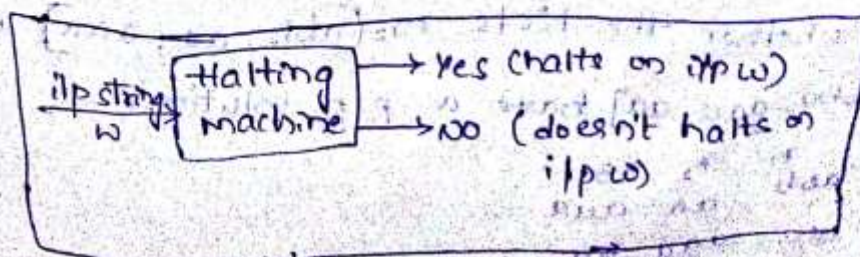 i/p string
w
Halting
machine
→ Yes (halts on i/p w)
→ NO (doesn't halts on
i/p w)